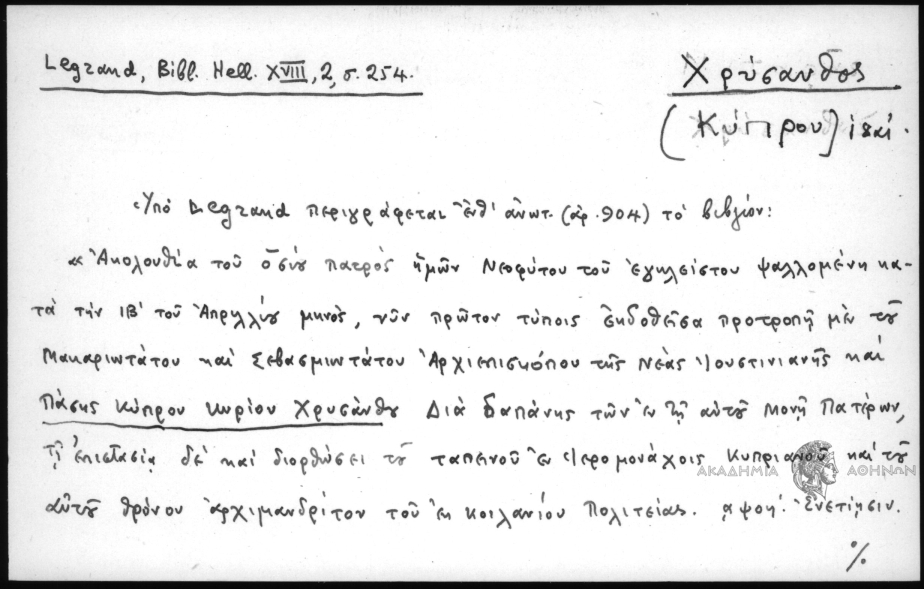 Legrand, Bibl. Hell. XVIII, 2, σ. 254.
Χρύσανθος
(Κύπρου)
Ὑπὸ Legrand περιγράφεται ἔνθ' ἀνωτ. (ἀρ. 904) τὸ βιβλίον:
« Ἀκολουθία τοῦ ὁσίου πατρὸς ἡμῶν Νεοφύτου τοῦ ἐγκλείστου ψαλλομένη κα-
τὰ τὴν ΙΒ' τοῦ Ἀπριλλίου μηνὸς, νῦν πρῶτον τύποις ἐκδοθεῖσα προτροπῇ μὲν τοῦ
Μακαριωτάτου καὶ Σεβασμιωτάτου Ἀρχιεπισκόπου τῆς Νέας Ἰουστινιανῆς καὶ
Πάσης Κύπρου Κυρίου Χρυσάνθου Διὰ δαπάνης τῶν ἐν τῇ αὐτοῦ Μονῇ Πατέρων,
τῇ ἐπιστασίᾳ δὲ καὶ διορθώσει τοῦ ταπεινοῦ ἐν Ἱερομονάχοις Κυπριανοῦ καὶ τοῦ
αὐτοῦ θρόνου ἀρχιμανδρίτου τοῦ ἐκ Κοιλανίου Πολιτείας. ͵αψοη'. Ἐνετίῃσιν.
ΑΚΑΔΗΜΙΑ ΑΘΗΝΩΝ
%